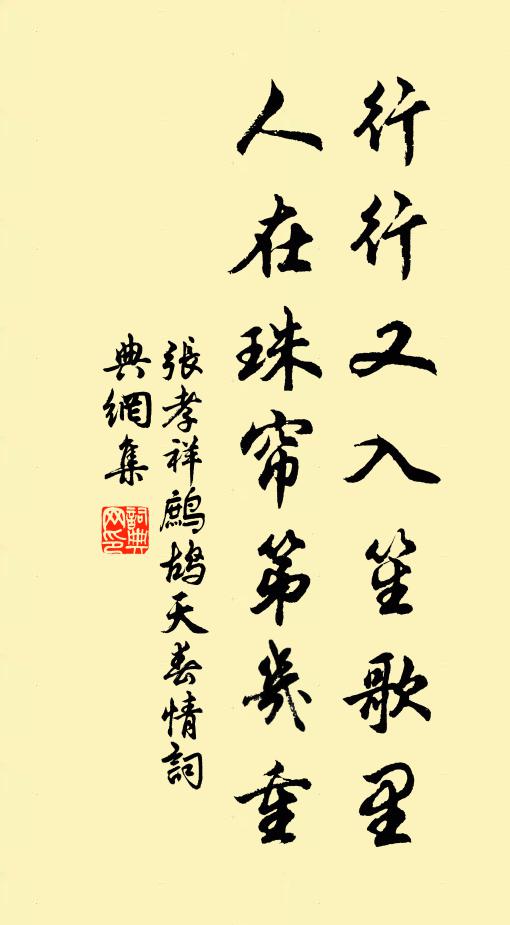 行行又入笙歌里
人在珠帘第幾重
張孝祥鷓鴣天春情詞
典網集
詞典
网印